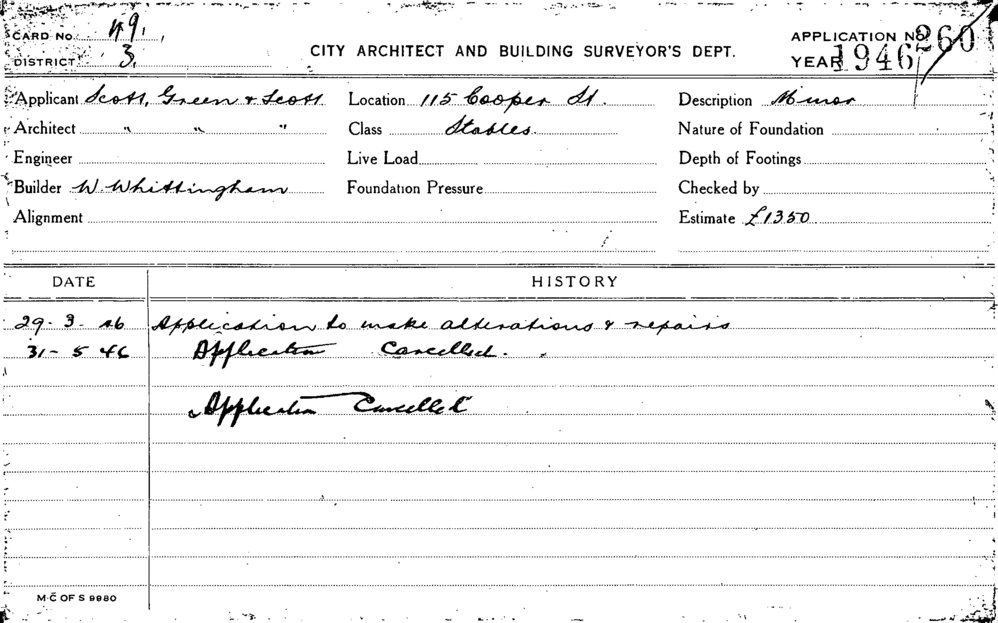 CARD No. 49.
DISTRICT 3.
CITY ARCHITECT AND BUILDING SURVEYOR'S DEPT.
APPLICATION No 260
YEAR 1946
Applicant Scott, Green & Scott Location 115 Cooper St. Description Minor
Architect " " " Class Stables. Nature of Foundation
Engineer Live Load Depth of Footings
Builder W. Whittingham Foundation Pressure Checked by
Alignment Estimate £1350
DATE HISTORY
29-3.46 Application to make alterations & repairs
31-5 46 Application Cancelled.
Application Cancelled
M.C OF S 9980